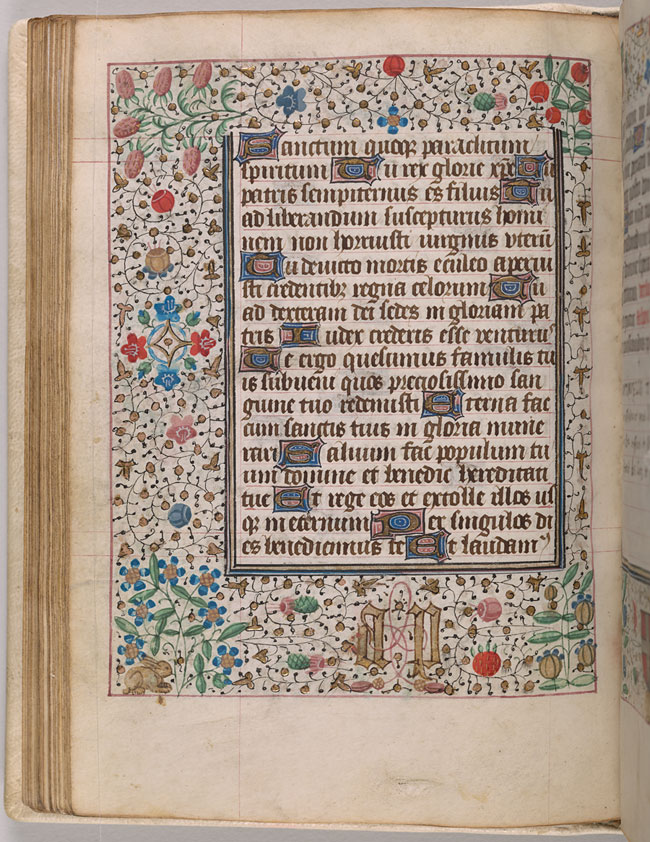 Sanctum quoqꝫ paraclitum
spiritum Tu rex glorie xp̄e Tu
patris sempiternus es filius Tu
ad liberandum suscepturus homi
nem non horruisti uirginis vterū
Tu deuicto mortis aculeo aperui
sti credentibꝫ regna celorum Tu
ad dexteram dei sedes in gloriam pa
tris Iudex crederis esse venturꝰ
Te ergo quesumus famulis tu
is subueni quos preciosissimo san
guine tuo redemisti Eterna fac
cum sanctis tuis in gloria nume
rari Saluum fac populum tu
um domine et benedic hereditati
tue Et rege eos et extolle illos us
qꝫ in eternum Per singulos di
es benedicimus te Et laudamꝰ